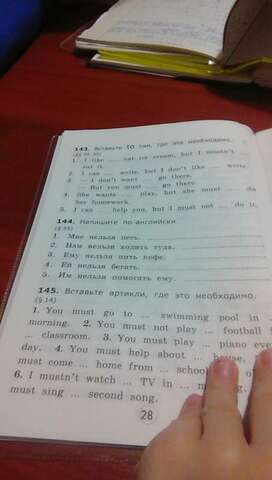 143. Вставьте to там, где это необходимо.
1. I like ... eat ice cream, but I mustn't ...
eat it.
2. I can ... write, but I don't like ... write.
3. – I don't want ... go there.
– But you must ... go there.
4. She wants ... play, but she must ... do
her homework.
5. I can ... help you, but I must not ... do it.
144. Напишите по-английски.
1. Мне нельзя петь.
2. Нам нельзя ходить туда.
3. Ему нельзя пить кофе.
4. Ей нельзя бегать.
5. Им нельзя помогать ему.
145. Вставьте артикли, где это необходимо.
(§ 14)
1. You must go to ... swimming pool in
morning. 2. You must not play ... football
... classroom. 3. You must play ... piano eve
day. 4. You must help about ... house.
must come ... home from ... school
6. I mustn't watch ... TV in ...
must sing ... second song.
28